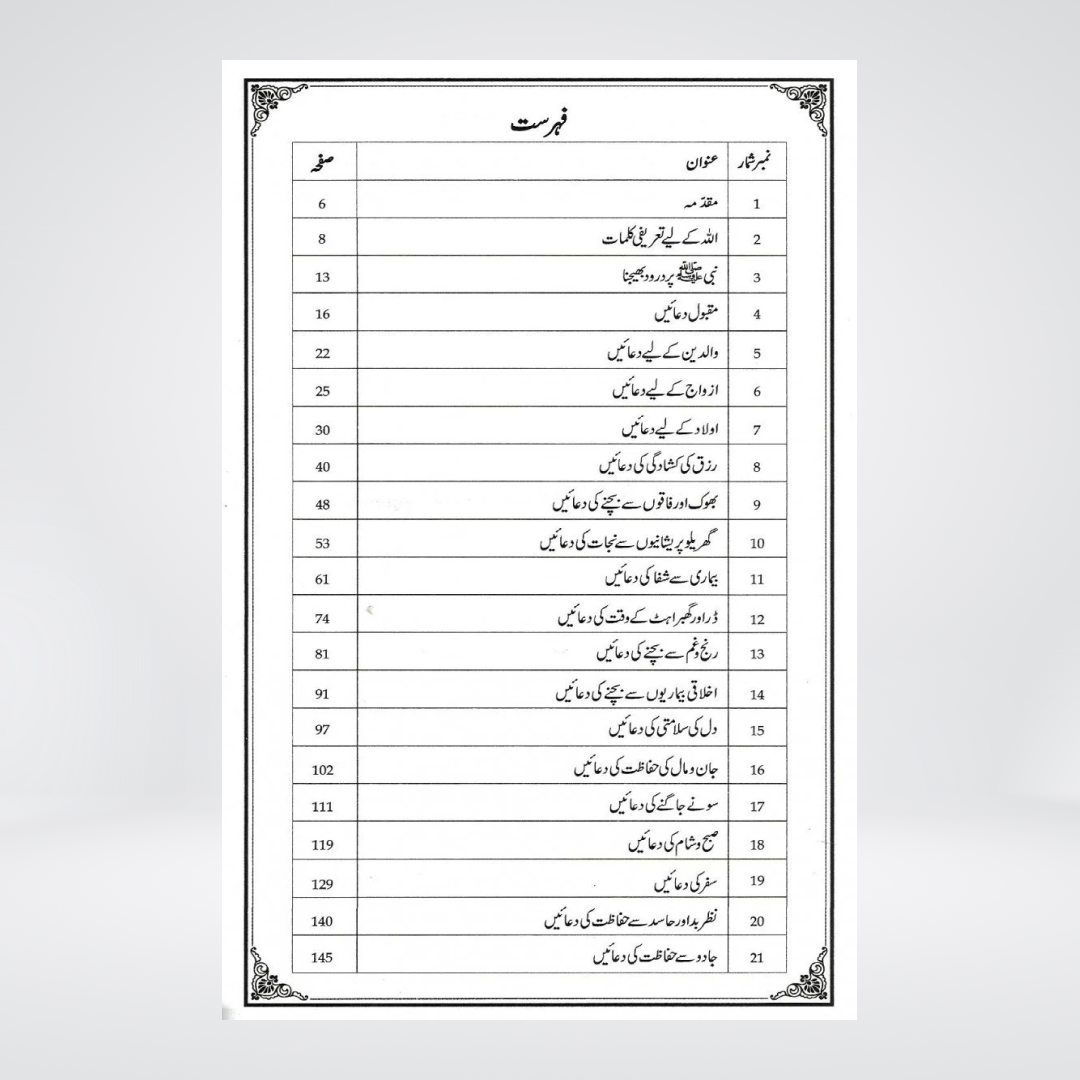 فہرست
نمبر شمار عنوان صفحہ
1 مقدّمہ 6
2 اللہ کے لیے تعریفی کلمات 8
3 نبی ﷺ پر درود بھیجنا 13
4 مقبول دعائیں 16
5 والدین کے لیے دعائیں 22
6 ازواج کے لیے دعائیں 25
7 اولاد کے لیے دعائیں 30
8 رزق کی کشادگی کی دعائیں 40
9 بھوک اور فاقوں سے بچنے کی دعائیں 48
10 گھریلو پریشانیوں سے نجات کی دعائیں 53
11 بیماری سے شفا کی دعائیں 61
12 ڈر اور گھبراہٹ کے وقت کی دعائیں 74
13 رنج و غم سے بچنے کی دعائیں 81
14 اخلاقی بیماریوں سے بچنے کی دعائیں 91
15 دل کی سلامتی کی دعائیں 97
16 جان و مال کی حفاظت کی دعائیں 102
17 سونے جاگنے کی دعائیں 111
18 صبح و شام کی دعائیں 119
19 سفر کی دعائیں 129
20 نظر بد اور حاسد سے حفاظت کی دعائیں 140
21 جادو سے حفاظت کی دعائیں 145